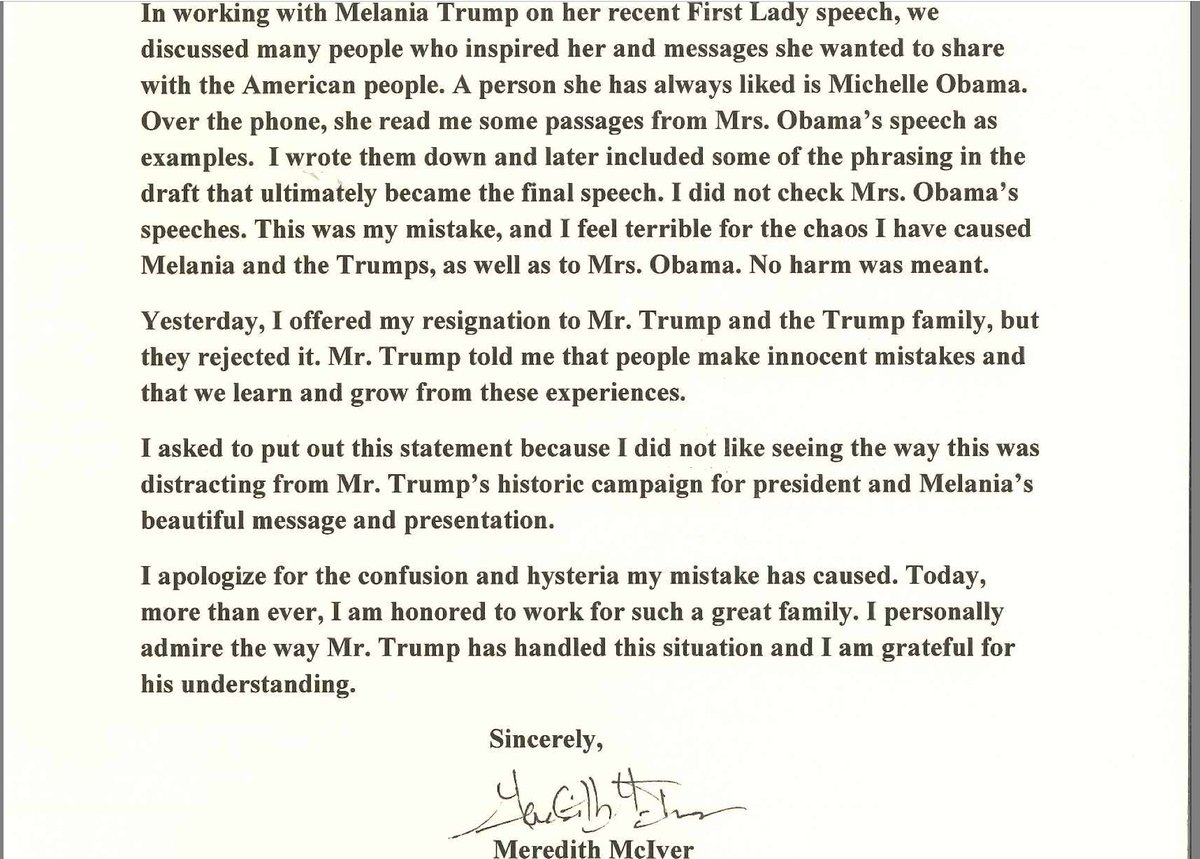 In working with Melania Trump on her recent First Lady speech, we
discussed many people who inspired her and messages she wanted to share
with the American people. A person she has always liked is Michelle Obama.
Over the phone, she read me some passages from Mrs. Obama’s speech as
examples.  I wrote them down and later included some of the phrasing in the
draft that ultimately became the final speech. I did not check Mrs. Obama’s
speeches. This was my mistake, and I feel terrible for the chaos I have caused
Melania and the Trumps, as well as to Mrs. Obama. No harm was meant.
Yesterday, I offered my resignation to Mr. Trump and the Trump family, but
they rejected it. Mr. Trump told me that people make innocent mistakes and
that we learn and grow from these experiences.
I asked to put out this statement because I did not like seeing the way this was
distracting from Mr. Trump’s historic campaign for president and Melania’s
beautiful message and presentation.
I apologize for the confusion and hysteria my mistake has caused. Today,
more than ever, I am honored to work for such a great family. I personally
admire the way Mr. Trump has handled this situation and I am grateful for
his understanding.
Sincerely,
Meredith McIver